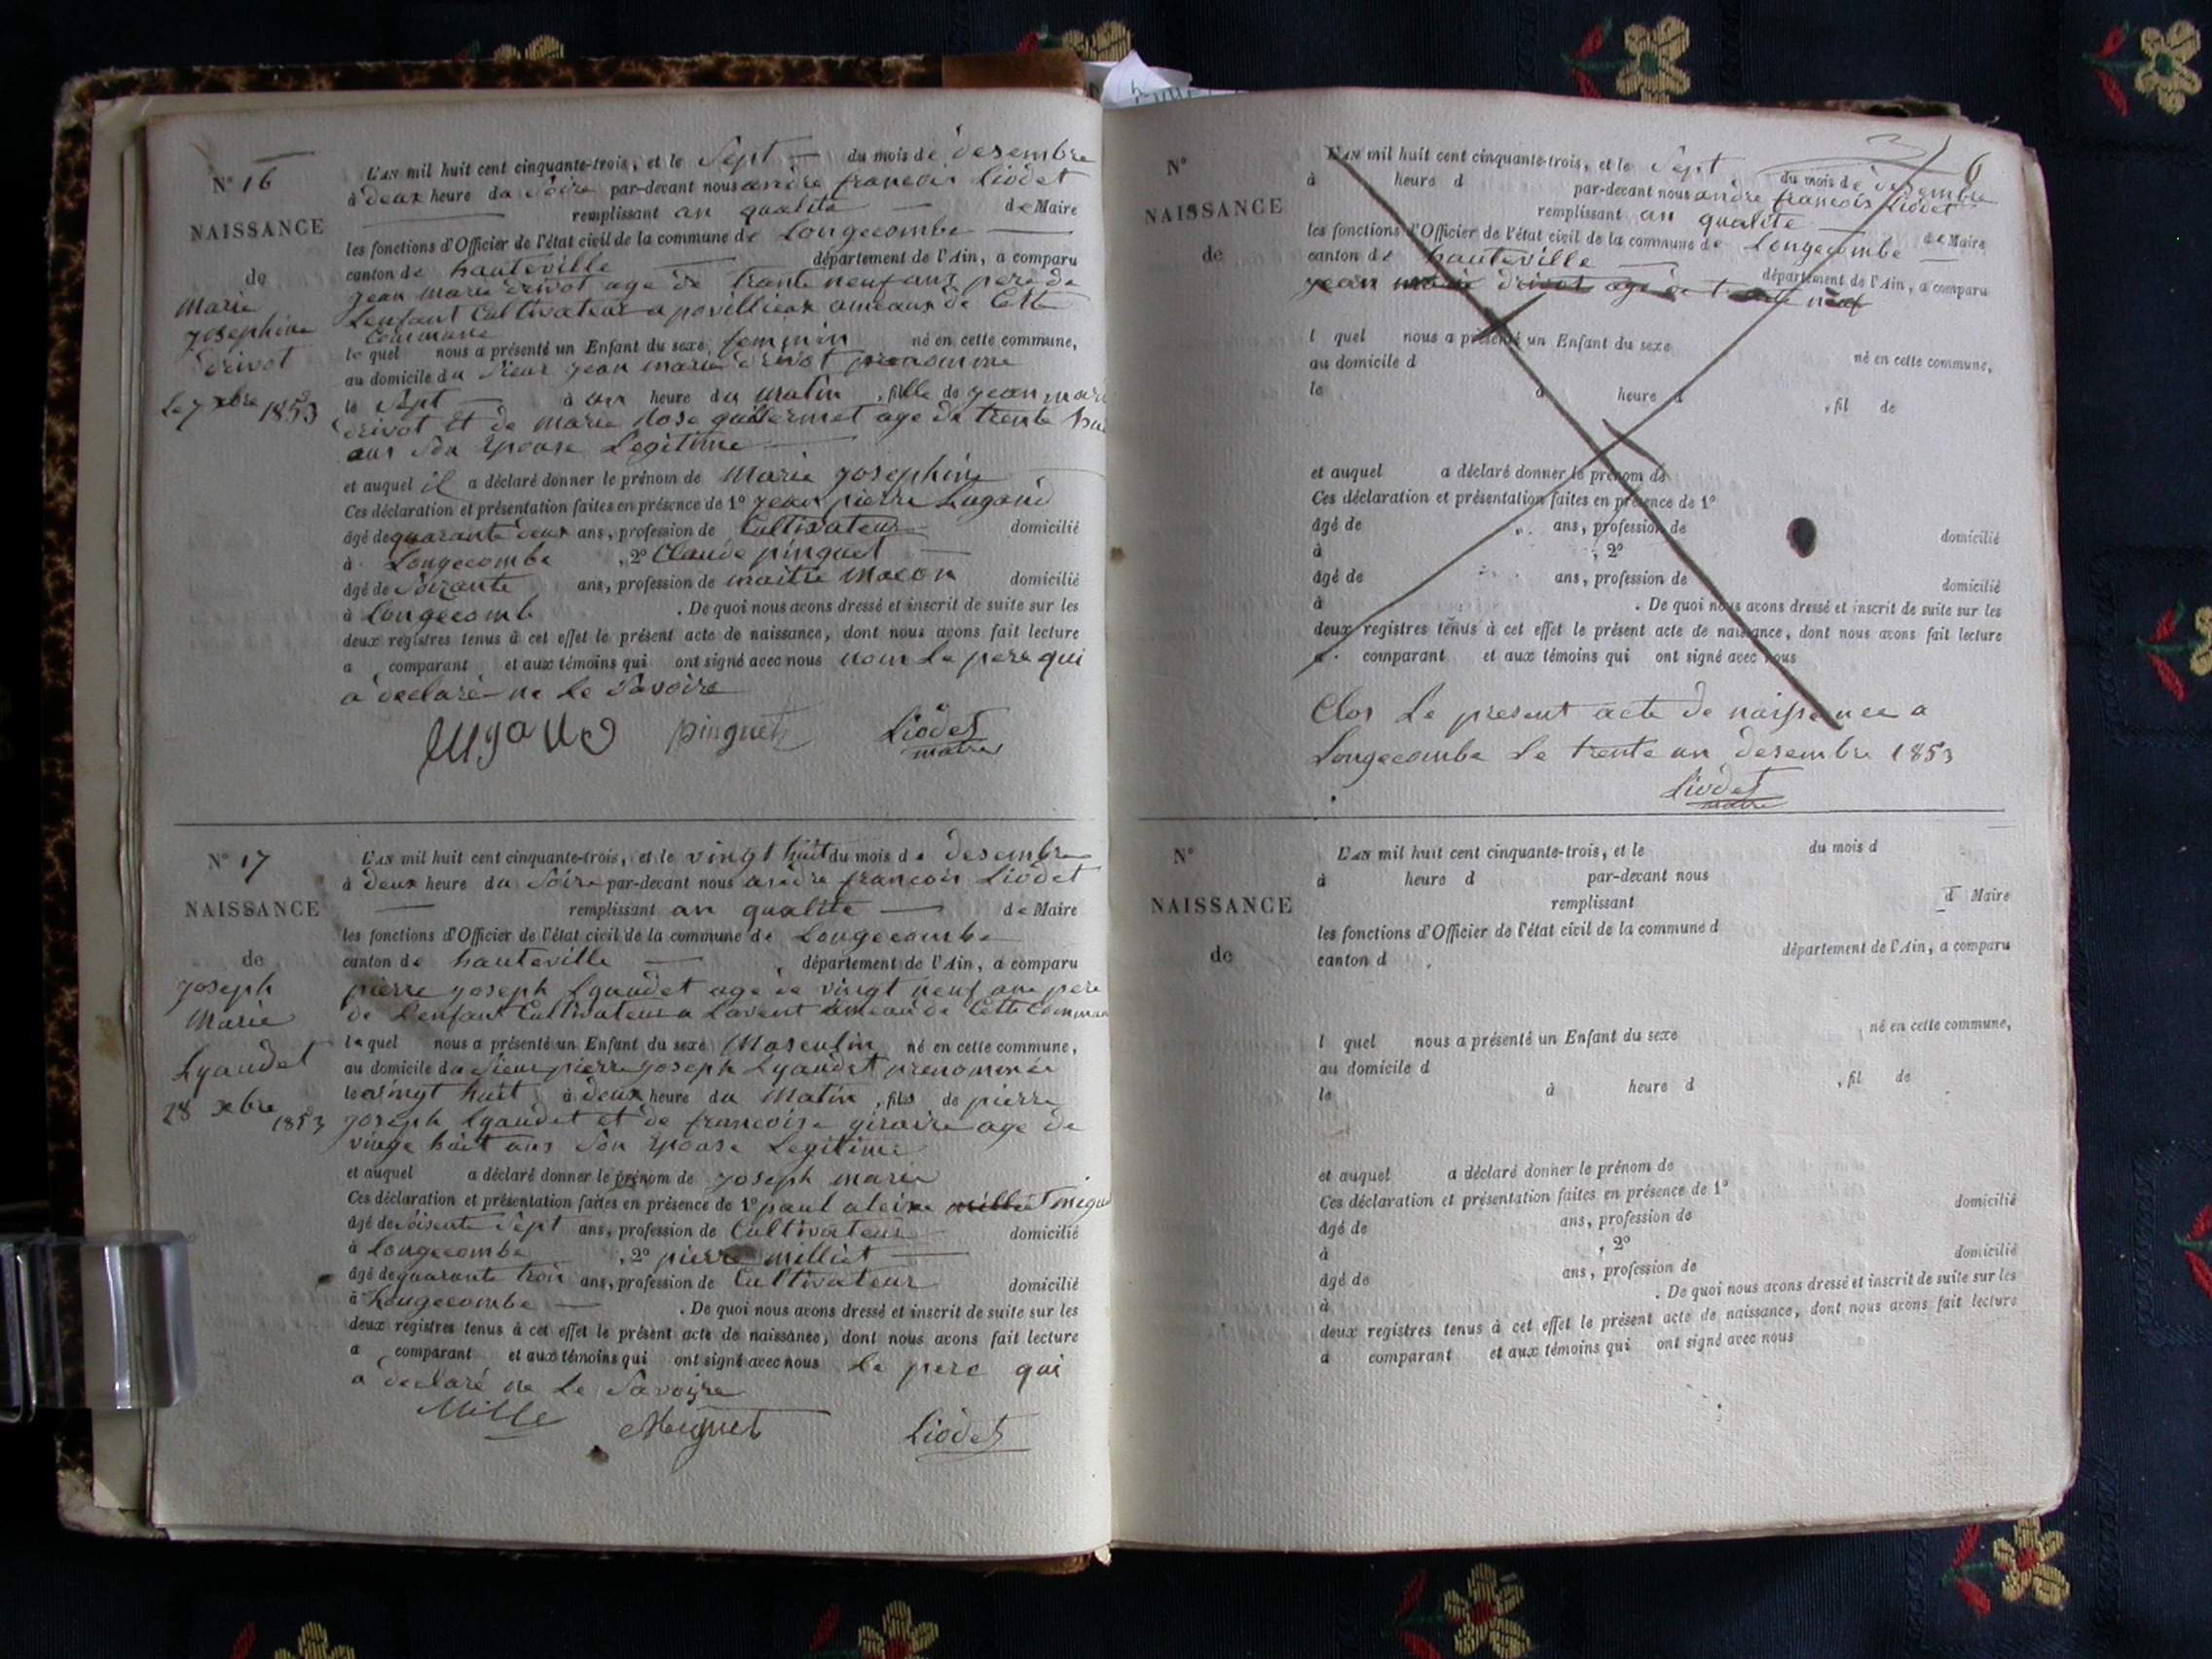 N° 16
NAISSANCE
de
Marie
Josephine
Drivot
Le 7 xbre 1853
L'AN mil huit cent cinquante-trois, et le Sept du mois de desembre
à deux heure du Soire par-devant nous andre francois Liodet
remplissant an qualite de Maire
les fonctions d'Officier de l'état civil de la commune de Longecombe
canton de hauteville département de l'Ain, a comparu
jean marie drivot age de trante neuf ans pere de
Lenfant Cultivateur a povillieux ameaux de Cette
Commune
le quel nous a présenté un Enfant du sexe feminin né en cette commune,
au domicile du Sieur jean marie drivot prenomme
le Sept à un heure du Matin, fille de jean mari
drivot et de marie Rose guillermet age de trente
ans Son Epouse Legitime
et auquel il a déclaré donner le prénom de Marie Josephine
Ces déclaration et présentation faites en présence de 1° jean pierre Lugand
âgé de quarante deux ans, profession de Cultivateur domicilié
à Longecombe, 2° Claude pinguet
âgé de Soizante ans, profession de maitre Macon domicilié
à Longecomb. De quoi nous avons dressé et inscrit de suite sur les
deux registres tenus à cet effet le présent acte de naissance, dont nous avons fait lecture
a comparant et aux témoins qui ont signé avec nous nom Le pere qui
a declaré ne Le Savoire
Lugand pinguet Liodet
maire
N° 17
NAISSANCE
de
Joseph
Marie
Lyaudet
28 xbre
1853
L'AN mil huit cent cinquante-trois, et le vingt huit du mois de desembre
à deux heure du Soire par-devant nous andre francois Liodet
remplissant an qualite de Maire
les fonctions d'Officier de l'état civil de la commune de Longecombe
canton de hauteville, département de l'Ain, a comparu
pierre joseph Lyaudet age de vingt neuf ans pere
de Lenfant Cultivateur a Lavent ameau de Cette Commun
le quel nous a présenté un Enfant du sexe Masculin né en cette commune,
au domicile du Sieur pierre joseph Lyaudet prenommée
le vingt huit à deux heure du Matin, fils de pierre
joseph lyaudet et de francoise giraire age de
vingt huit ans Son Epouse Legitime
et auquel a déclaré donner le prénom de joseph marie
Ces déclaration et présentation faites en présence de 1° paul millet
âgé de Soisente Sept ans, profession de Cultivateur domicilié
à Longecombe, 2° pierre milliet
âgé de quarante trois ans, profession de Cultivateur domicilié
à Longecombe. De quoi nous avons dressé et inscrit de suite sur les
deux registres tenus à cet effet le présent acte de naissance, dont nous avons fait lecture
a comparant et aux témoins qui ont signé avec nous Le pere qui
a declaré ne Le Savoire
Mille Miguet Liodet
6
N°
NAISSANCE
de
L'AN mil huit cent cinquante-trois, et le Sept du mois de desembre
à heure d par-devant nous andre francois Liodet
remplissant an qualite de Maire
les fonctions d'Officier de l'état civil de la commune de Longecombe
canton de hauteville département de l'Ain, a comparu
jean marie drivot age de neuf
l quel nous a présenté un Enfant du sexe né en cette commune,
au domicile d
le à heure d, fil de
et auquel a déclaré donner le prénom de
Ces déclaration et présentation faites en présence de 1°
âgé de ans, profession de domicilié
à, 2°
âgé de ans, profession de domicilié
à. De quoi nous avons dressé et inscrit de suite sur les
deux registres tenus à cet effet le présent acte de naissance, dont nous avons fait lecture
a comparant et aux témoins qui ont signé avec nous
Clos Le present acte de naissance a
Longecombe Le trente un desembre 1853
Liodet
maire
N°
NAISSANCE
de
L'AN mil huit cent cinquante-trois, et le du mois d
à heure d par-devant nous
remplissant d Maire
les fonctions d'Officier de l'état civil de la commune d
canton d département de l'Ain, a comparu
l quel nous a présenté un Enfant du sexe né en cette commune,
au domicile d
le à heure d, fil de
et auquel a déclaré donner le prénom de
Ces déclaration et présentation faites en présence de 1°
âgé de ans, profession de domicilié
à, 2°
âgé de ans, profession de domicilié
à. De quoi nous avons dressé et inscrit de suite sur les
deux registres tenus à cet effet le présent acte de naissance, dont nous avons fait lecture
a comparant et aux témoins qui ont signé avec nous